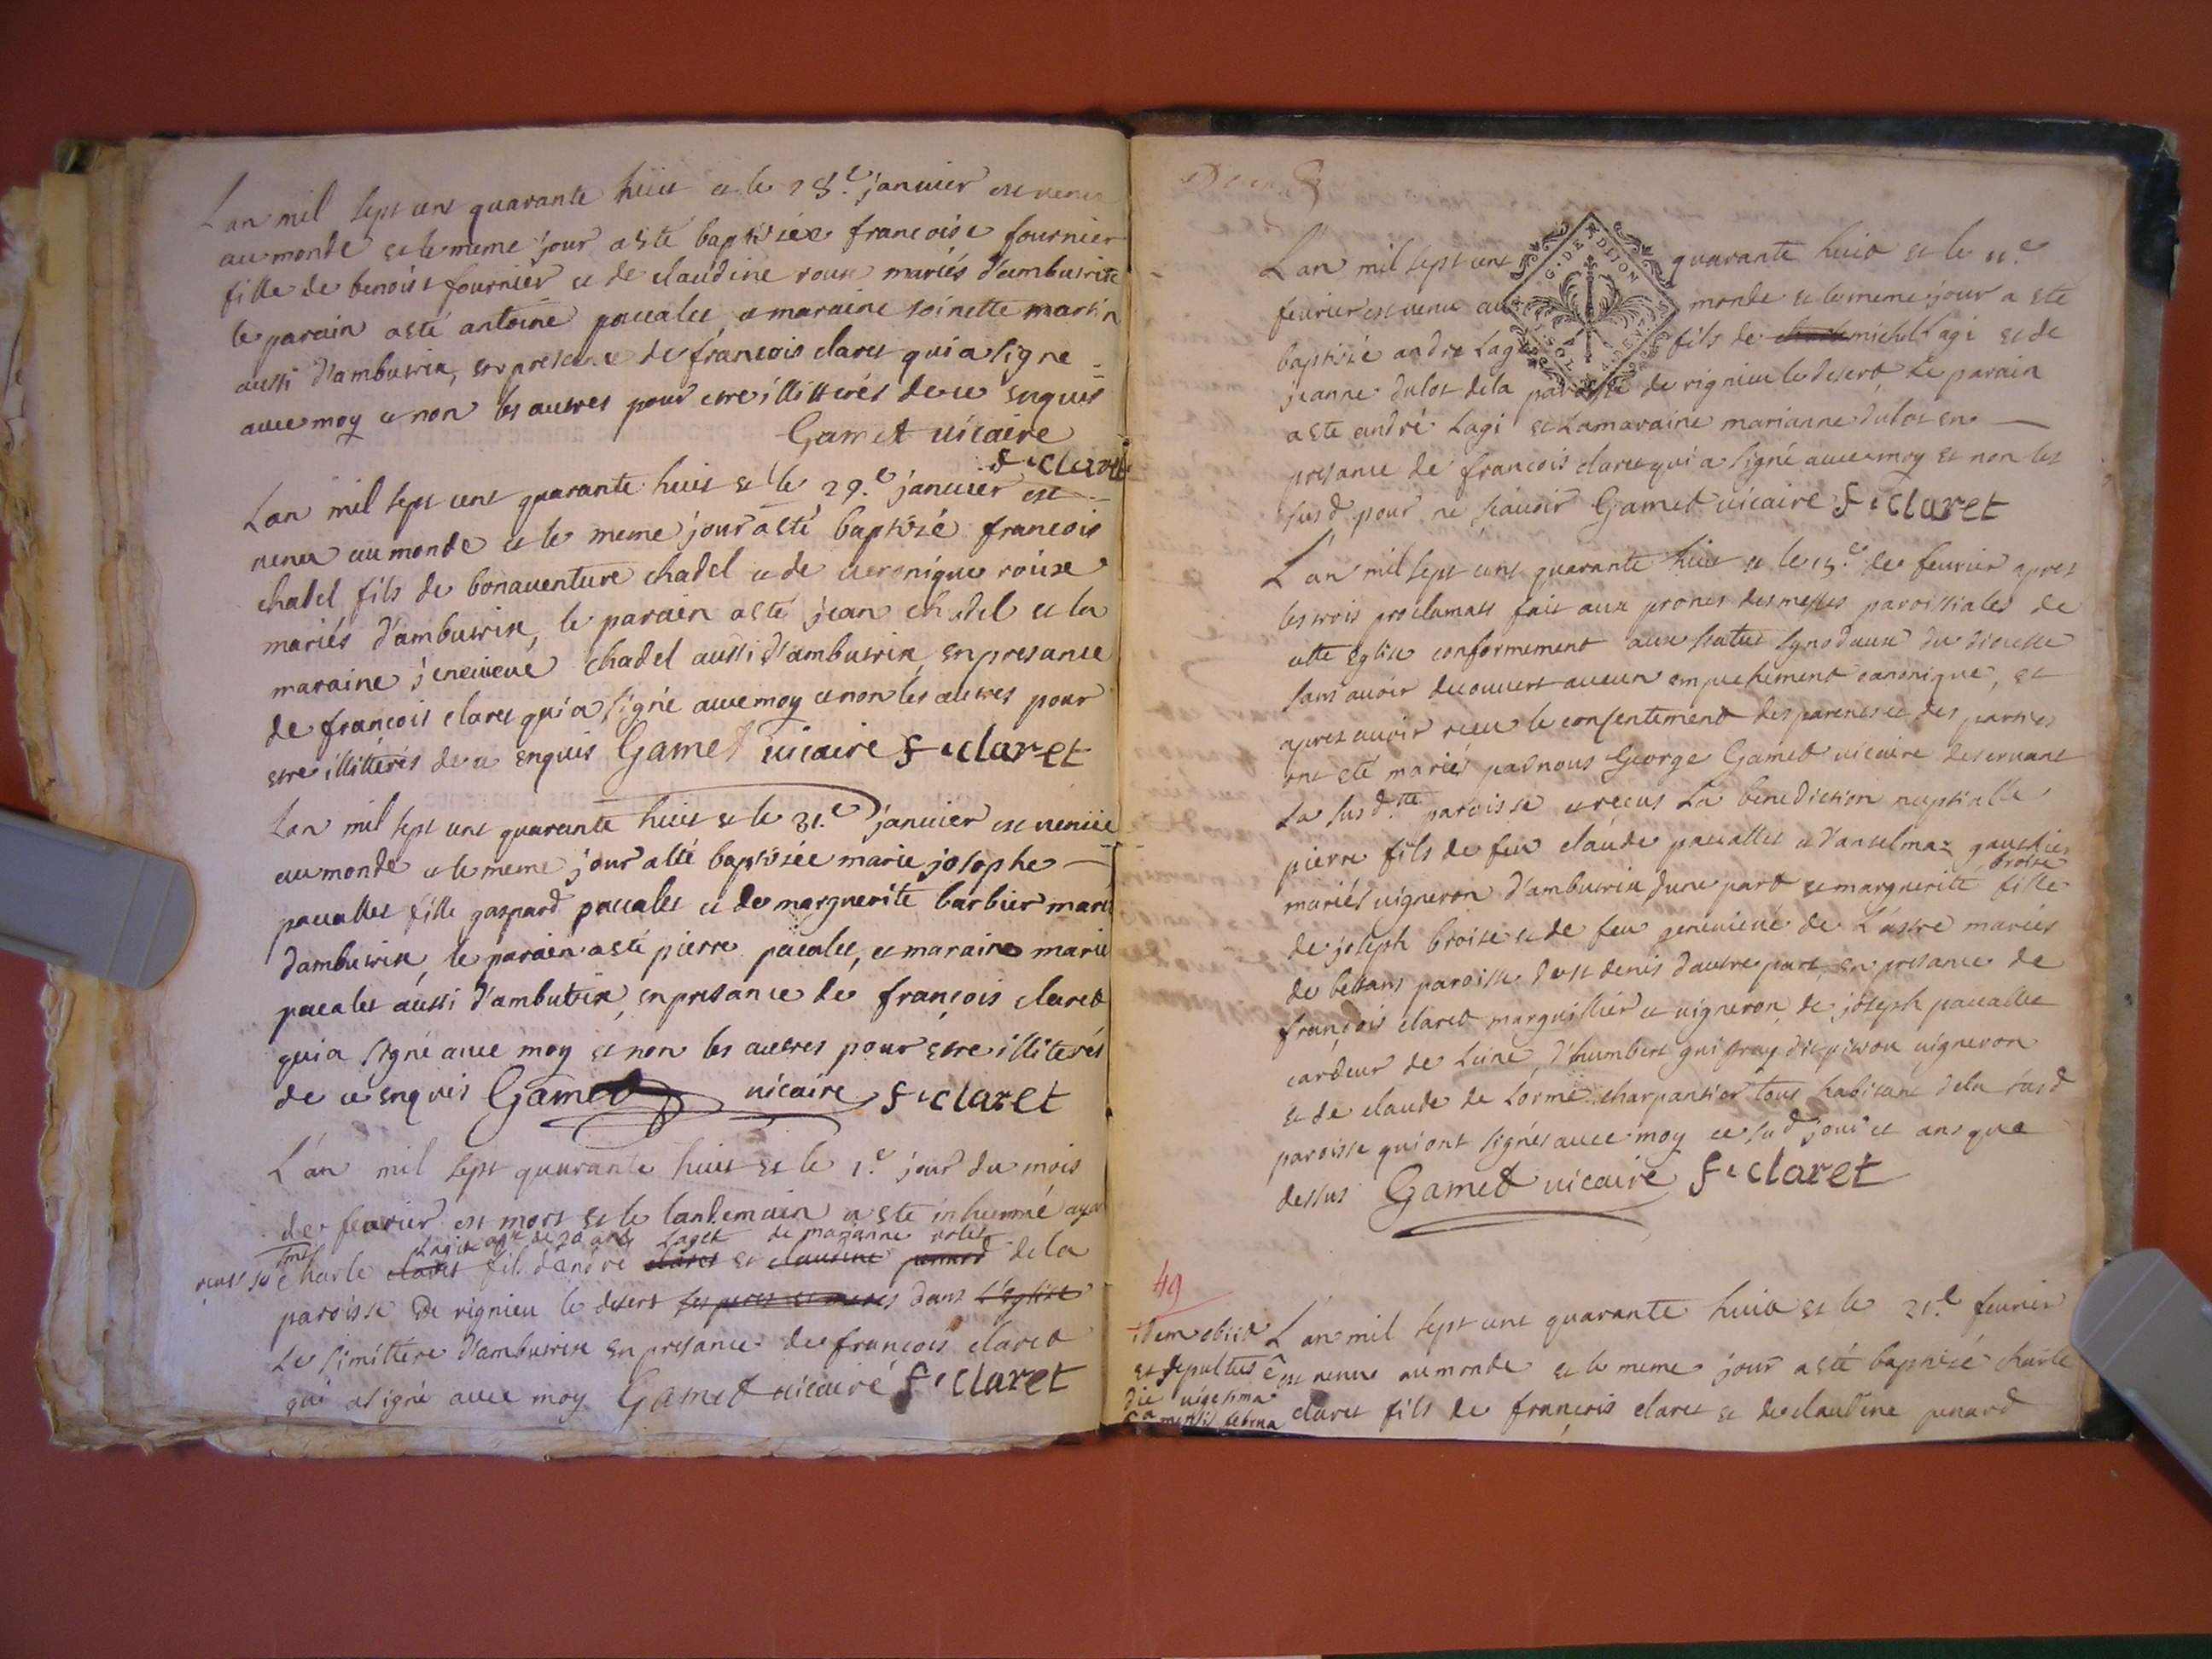 Lan mil sept cent quarante huit et le 28.e janvier est venue
au monde et le meme jour a esté baptisée francoise fournier
fille de benoist fournier et de claudine roux mariés d'ambutrix
le parain a esté antoine paccalet, et maraine toinette martin
aussi d'ambutrix, en presence de francois claret qui a signe
avec moy et non les autres pour etre illitterés de ce enquis
Gamet vicaire
f. claret
Lan mil sept cent quarante huit et le 29.e janvier est
venu au monde et le meme jour a esté baptisé francois
chadel fils de bonaventure chadel et de veronique rouxe
mariés d'ambutrix, le parain a esté jean chadel et la
maraine jeneiveve chadel aussi d'ambutrix, en presance
de francois claret qui a signé avec moy et non les autres pour
etre illitterés de ce enquis Gamet vicaire f. claret
Lan mil sept cent quarante huit et le 31.e janvier est venüe
au monde et le meme jour a esté baptisée marie josephe
paccallet fille gaspard paccalet et de marguerite barbier mariés
d'ambutrix, le parain a esté pierre paccalet, et maraine marie
pacalet aussi d'ambutrix, en presance de françois claret
qui a signé avec moy et non les autres pour etre illiterés
de ce enquis Gamet vicaire f. claret
L'an mil sept quarante huit et le 1.e jour du mois
de fevrier est mort et le landemain a este inhumé ayant
Lagi agé de 20 ans Laget de marianne
charle claret fils d'andré claret et claudine penard de la
paroisse de rignieu le desert ses peres et meres dans L'eglise
Le simittere d'ambutrix en presance de françois claret
qui a signé avec moy Gamet vicaire f. claret
L'an mil sept cent quarante huit et le 11.e
G. DE DIJON
fevrier est venu au monde et le meme jour a ete
baptisé andre Lagi fils de michel Lagi et de
jeanne dulot de la paroisse de rignieu le desert, Le parain
a ete andré Lagi et La maraine marianne dulot en
presance de francois claret qui a signé avec moy et non les
susd. pour ne scavoir Gamet vicaire f. claret
L'an mil sept cent quarante huit et le 15.e de fevrier apres
les trois proclamats fait aux prones des messes paroissiales de
cette Eglise conformement aux statuts synodaux du diocesse
sans avoir decouvert aucun empechement canonique, et
apres avoir receu le consentement des parents et des parties
ont eté mariés par nous George Gamet vicaire deservant
La susd.te paroisse et recus La benediction nuptialle,
pierre fils de feu claude paccallet et d'anselmaz gauthier
mariés vigneron d'ambutrix d'une part et marguerite broise fille
de joseph broise et de feu genevieve de L'astre mariés
de bettant paroisse de st denis d'autre part, en presance de
françois claret marguillier et vigneron, de joseph paccallet
cardeur de Leine, d'humbert dit vigneron
et de claude de Lorme charpantier tous habitant de la susd
paroisse qui ont signés avec moy ce sud jour et ans que
dessus Gamet vicaire f. claret
49
idem obiit
et sepultus
die vigesima
mensis
L'an mil sept cent quarante huit et le 21.e fevrier
est venu au monde et le meme jour a esté baptisé charle
claret fils de françois claret et de claudine penard